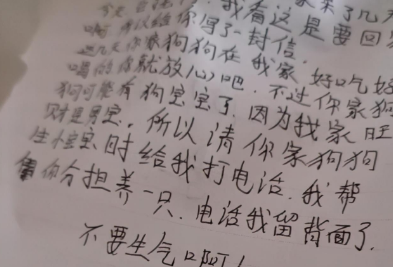 今天 我看这是要回
啊 所以给你写了一封信.
这几天你家狗狗在我家, 好吃好
喝的你就放心吧. 不过你家狗
狗可能有狗宝宝了, 因为我家旺
财是男宝. 所以请你家狗狗
生宝宝时给我打电话. 我帮
你分担养一只. 电话我留背面了.
不要生气啊!